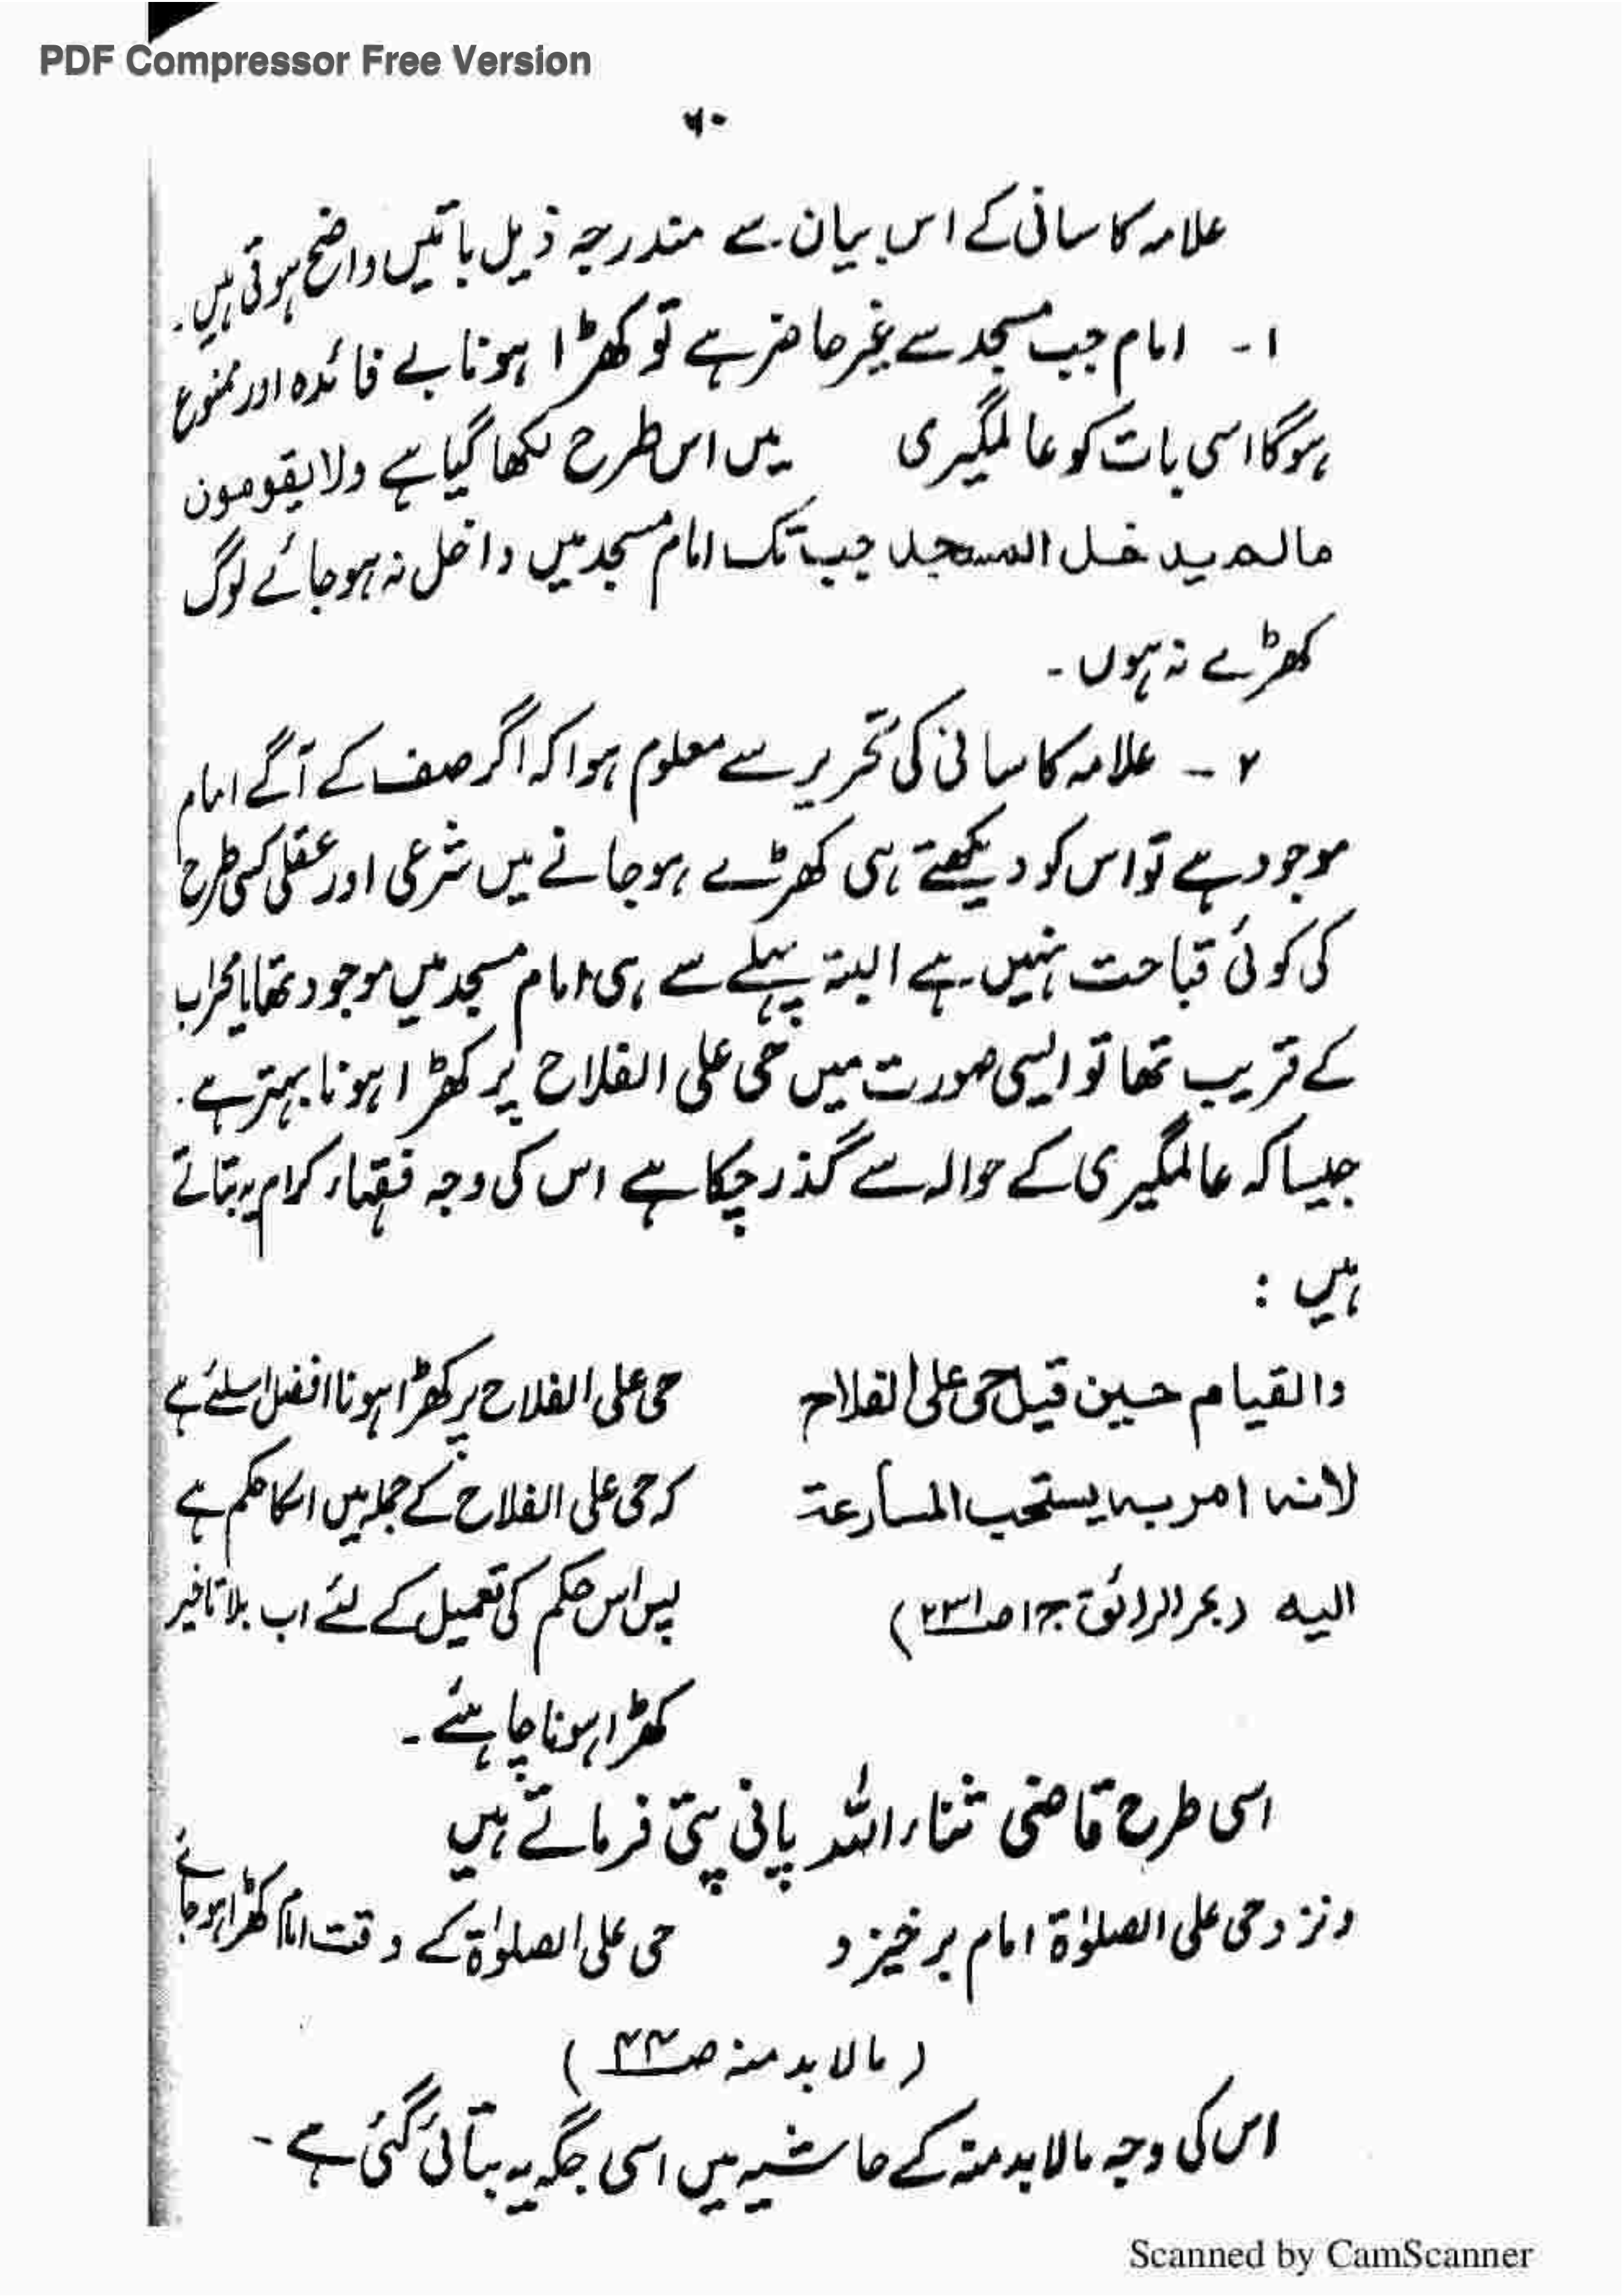 PDF Compressor Free Version
۶۰
علامہ کاسانی کے اس بیان سے مندرجہ ذیل باتیں واضح ہوتی ہیں۔
۱۔ امام جب مسجد سے غیر حاضر ہے تو کھڑا ہونا بے فائدہ اور ممنوع
ہوگا اسی بات کو عالمگیری میں اس طرح لکھا گیا ہے ولا یقومون
مالم یدخل المسجد جب تک امام مسجد میں داخل نہ ہو جائے لوگ
کھڑے نہ ہوں۔
۲۔ علامہ کاسانی کی تحریر سے معلوم ہوا کہ اگر صف کے آگے امام
موجود ہے تو اس کو دیکھتے ہی کھڑے ہو جانے میں شرعی اور عقلی کسی طرح
کی کوئی قباحت نہیں ہے البتہ پہلے سے ہی امام مسجد میں موجود تھا یا محراب
کے قریب تھا تو ایسی صورت میں حی علی الفلاح پر کھڑا ہونا بہتر ہے۔
جیسا کہ عالمگیری کے حوالہ سے گذر چکا ہے اس کی وجہ فقہاء کرام یہ بتاتے
ہیں :
والقیام حین قیل حی علی الفلاح حی علی الفلاح پر کھڑا ہونا افضل اسلئے ہے
لانہ امر بہ یستحب المسارعۃ کہ حی علی الفلاح کے جملہ میں اسکا حکم ہے
الیہ (بحر الرائق ج۱ ص۳۲۱) پس اس حکم کی تعمیل کے لئے اب بلا تاخیر
کھڑا ہونا چاہئے۔
اسی طرح قاضی ثناء اللہ پانی پتی فرماتے ہیں
ونزد حی علی الصلوٰۃ امام برخیزد حی علی الصلوٰۃ کے وقت امام کھڑا ہو جائے
(مالا بد منہ ص۴۴)
اس کی وجہ مالا بد منہ کے حاشیہ میں اسی جگہ یہ بتائی گئی ہے۔
Scanned by CamScanner